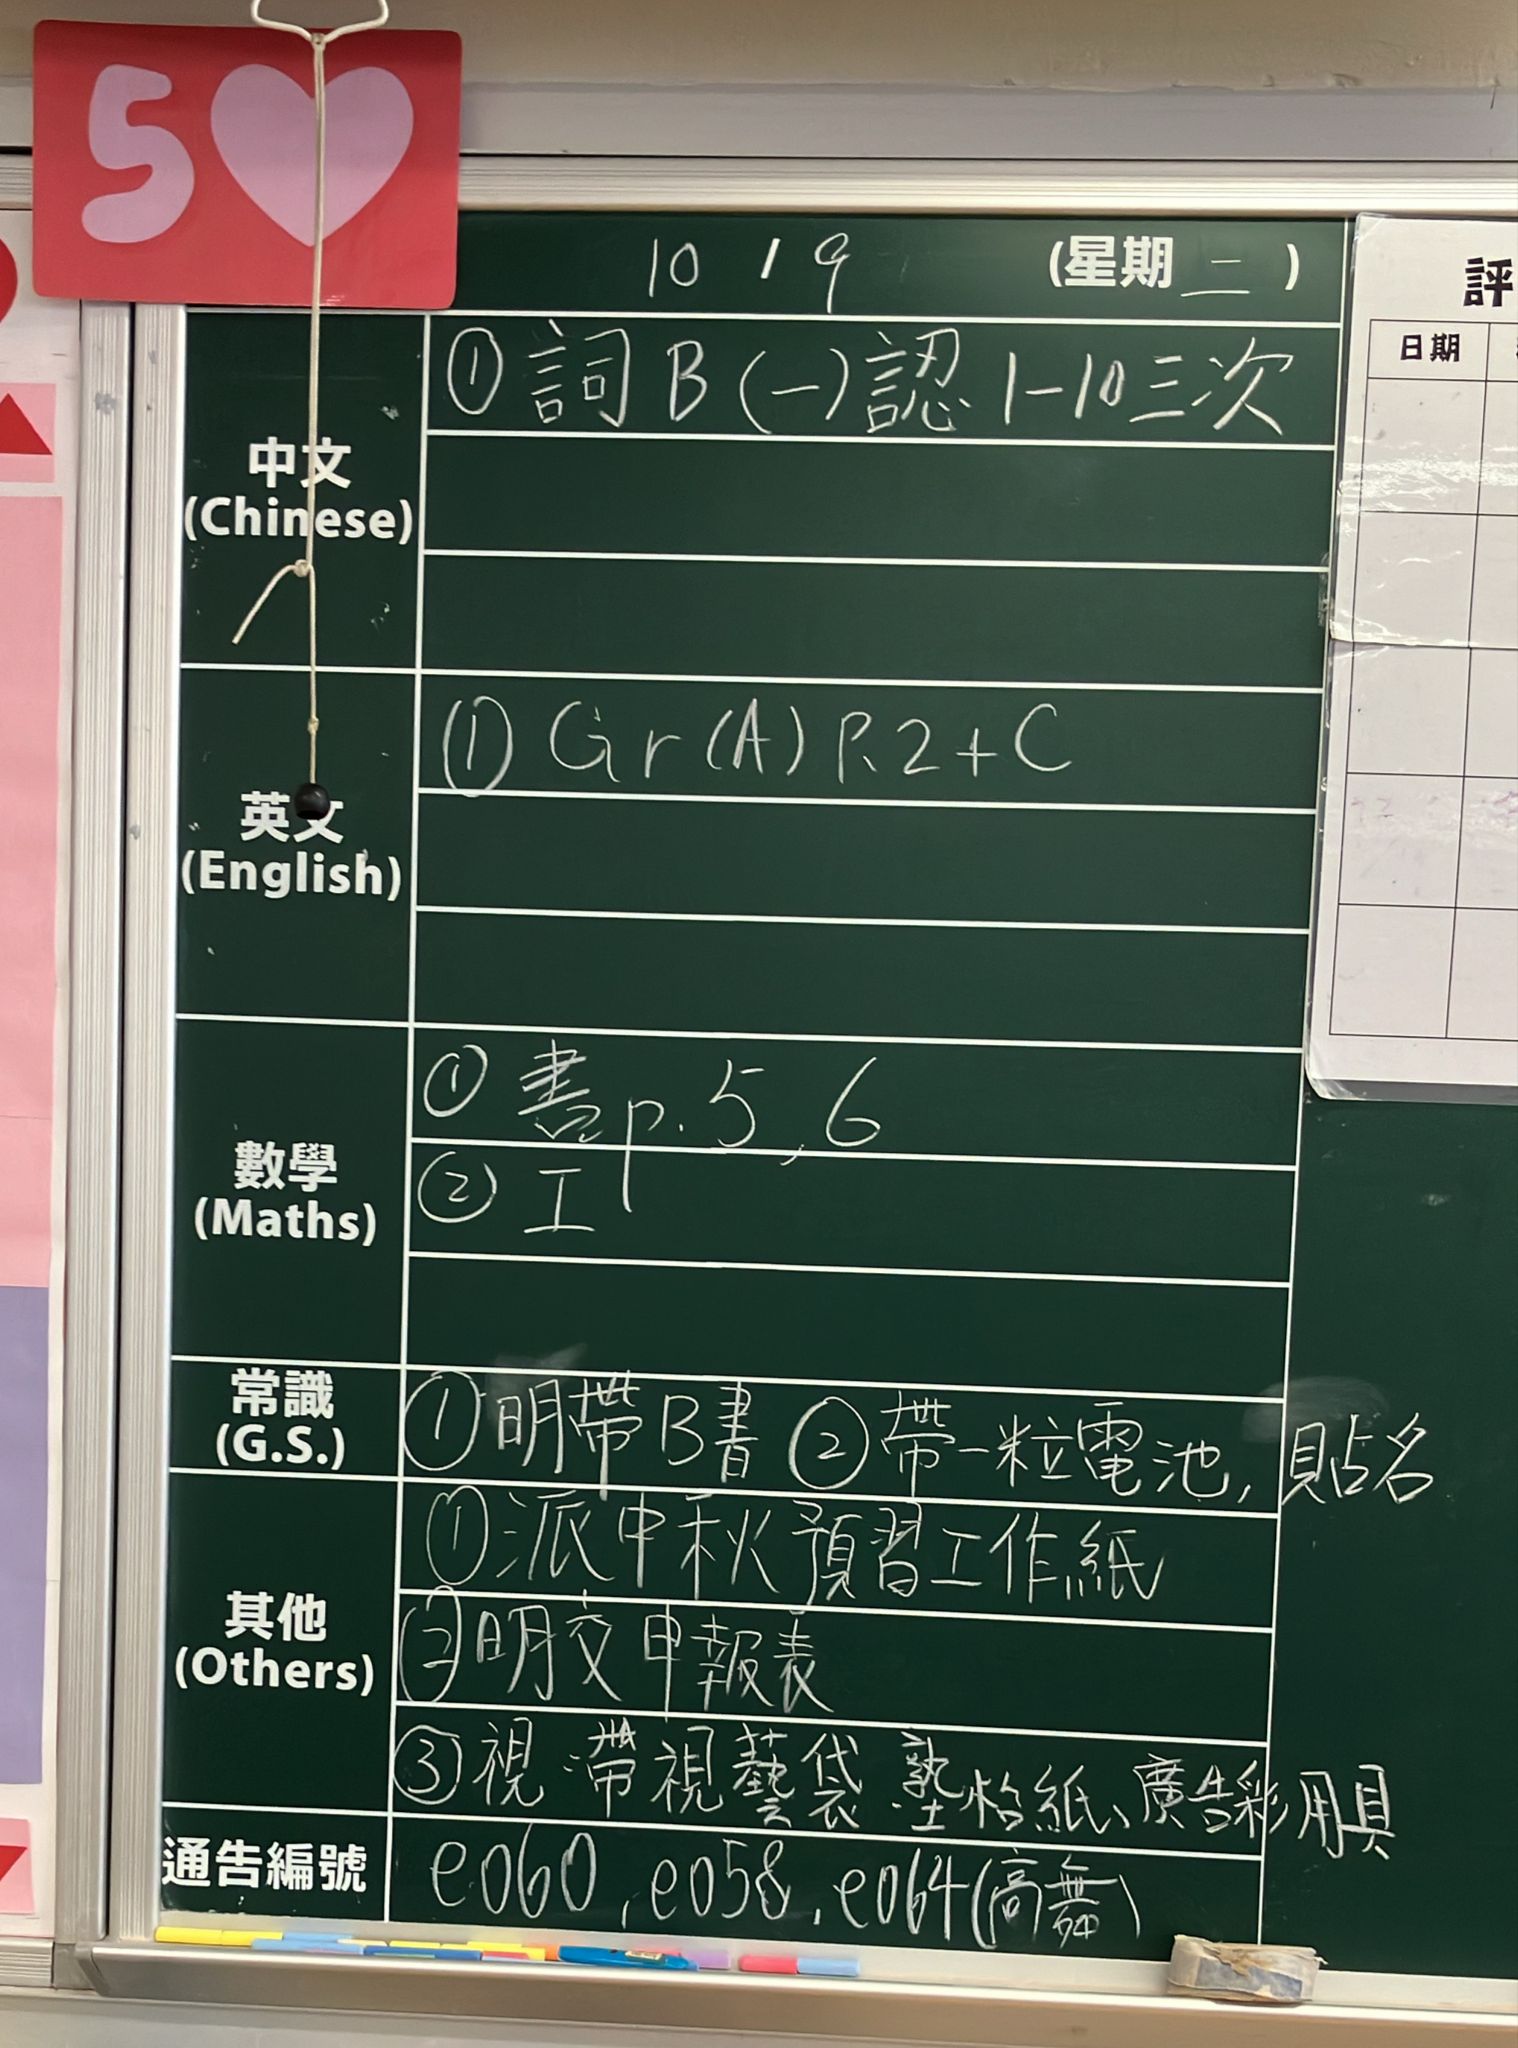 5
10 / 9 (星期二)
評
日期
中文
(Chinese)
① 詞B(一)認1-10三次
英文
(English)
① Gr(A) P.2+C
數學
(Maths)
① 書p.5,6
② 工
常識
(G.S.)
①明帶B書 ②帶一粒電池,貼名
其他
(Others)
①派中秋預習工作紙
②明交申報表
③視:帶視藝袋 墊枱紙、廣告彩用具
通告編號
e060,e058,e064(高舞)